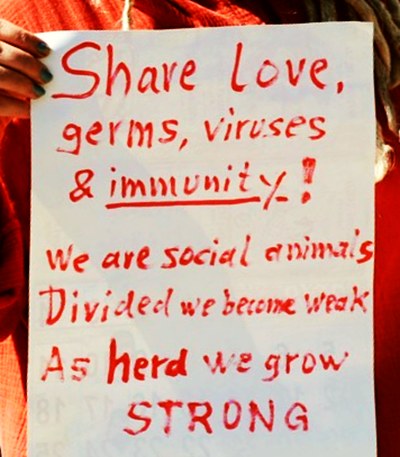 Share love,
germs, viruses
& immunity!
We are social animals
Divided we become weak
As herd we grow
STRONG